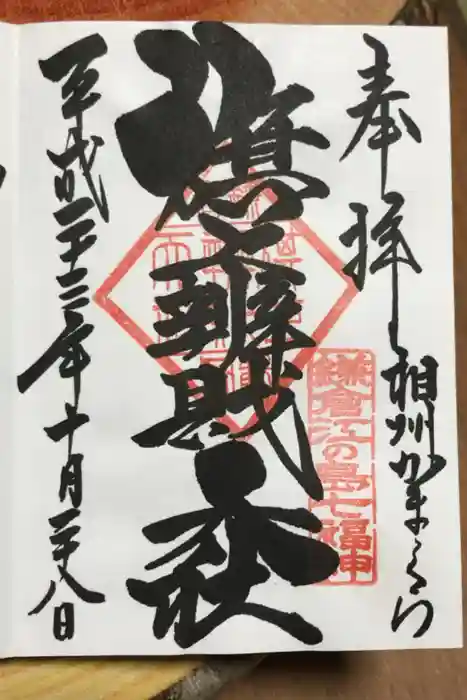 奉拝
相州かまくら
鎌倉江の島七福神
旗上辨財天社
平成二十三年十月二十八日